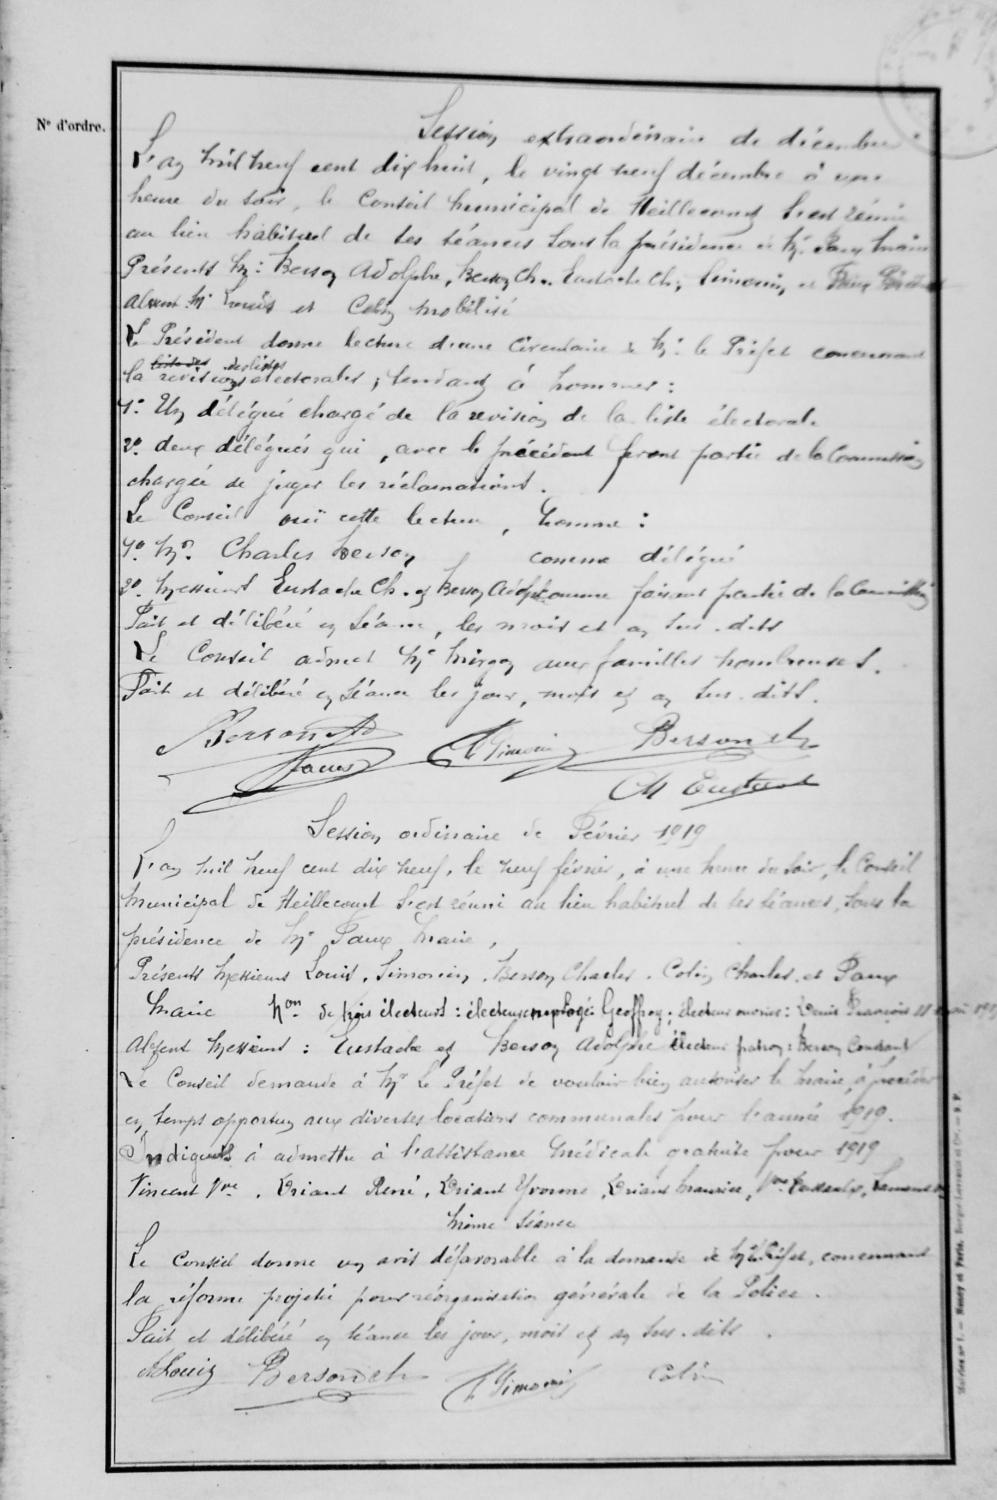 N° d'ordre.
Session extraordinaire de décembre
L'an mil neuf cent dix huit, le vingt neuf décembre à une
heure du soir, le Conseil municipal de Heillecourt s'est réuni
au lieu habituel de ses séances sous la présidence de Mr. Paux maire
Présents Mr: Berson Adolphe, Berson Ch., Eustache Ch, Simonin, et
absent Mr Louis et Colin mobilisé
Le Président donne lecture d'une Circulaire de Mr. le Préfet concernant
la revision des listes électorales, tendant à nommer:
1° Un délégué chargé de la revision de la liste électorale
2° deux délégués qui, avec le précédent feront partie de la Commission
chargée de juger les réclamations.
Le Conseil ouï cette lecture, nomme:
1° Mr. Charles Berson comme délégué
2° Messieurs Eustache Ch. et Berson Adolphe comme faisant partie de la Commission
Fait et délibéré en séance, les mois et an sus-dits
Le Conseil admet Mr aux familles nombreuses.
Fait et délibéré en séance les jour, mois et an sus-dits.
Berson Ad
Paux Simonin Berson Ch
Ch Eustache
Session ordinaire de Février 1919
L'an mil neuf cent dix neuf, le neuf février, à une heure du soir, le Conseil
municipal de Heillecourt s'est réuni au lieu habituel de ses séances, sous la
présidence de Mr Paux Maire,
Présents Messieurs Louis, Simonin, Berson Charles, Colin Charles et Paux
Maire Non de trois électeurs: électeur employé: Geoffroy; électeur ouvrier: Denis François
Absent Messieurs: Eustache et Berson Adolphe électeur patron: Berson Constant
Le Conseil demande à Mr le Préfet de vouloir bien autoriser le Maire, à procéder
en temps opportun aux diverses locations communales pour l'année 1919.
Indigents à admettre à l'assistance médicale gratuite pour 1919
Vincent Vve, Driant René, Driant Yvonne, Driant Maurice, Vve
Même séance
Le Conseil donne un avis défavorable à la demande de Mr le Préfet, concernant
la réforme projetée pour réorganisation générale de la Police.
Fait et délibéré en séance les jour, mois et an sus-dits.
A Louis Berson Ch Simonin Colin
Nancy et Paris, Berger-Levrault et Cie. — S.P.